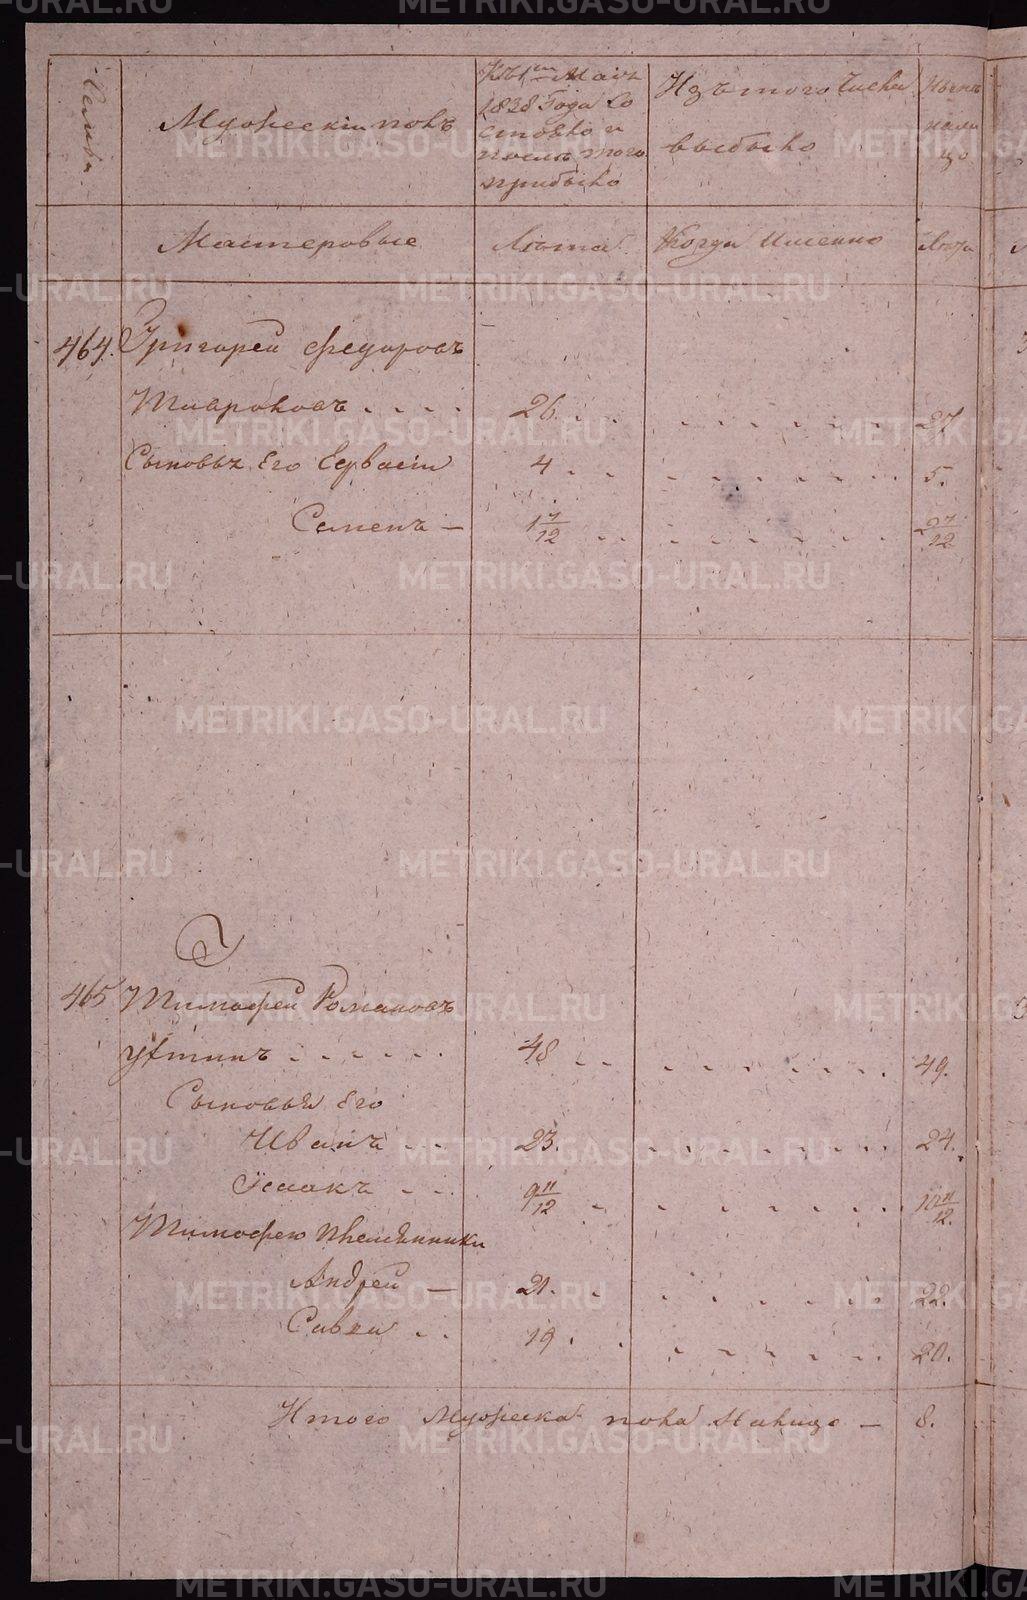 Семьи
Мужескiй полъ
Къ 1му Маiя
1828 Года со
стояло и
после того
прибыло
Изъ того числа
выбыло
Ныне
нали
цо
Мастеровые
Лета
Когда Имянно
Лета
464. Григорей Федоровъ
26 . . 27
Сыновья Его
4 . . 5.
Семенъ — 1 7/12 . . 2 7/12
465 Тимофей Романовъ
48 . . 49.
Сыновья Его
Иванъ . . 23. . . 24.
Исаакъ . . 9 11/12 . . 10 11/12.
Тимофею племянники
Андрей — 21. . . 22.
Савва . . 19 . . 20.
Итого Мужеска пола Налицо — 8.
METRIKI.GASO-URAL.RU